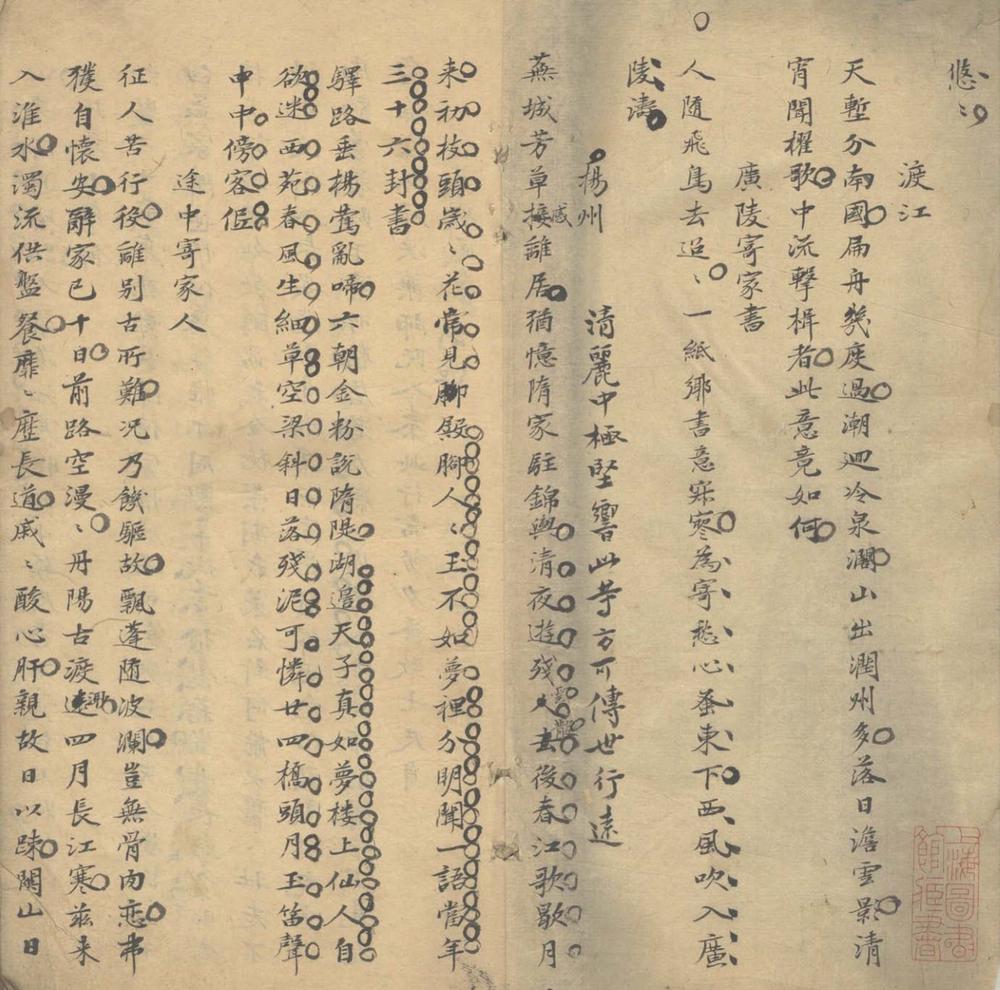 悠〻
渡江
天塹分南國扁舟幾度過潮迴冷泉濶山出潤州多落日澹雲影清
宵聞櫂歌中流擊楫者此意竟如何
廣陵寄家書
人隨飛鳥去迢〻一紙鄉書意寂寥為寄愁心叁東下西風吹入廣
陵濤
揚州 清麗中極堅響此等方可傳世行遠
感
蕪城芳草接離居猶憶隋家駐錦輿清夜遊殘人去後春江歌歇月
來初枝頭歲〻花常見脚殿腳人〻玉不如夢裡分明聞一語當年
三十六封書
驛路垂楊鶯亂啼六朝金粉說隋隄湖邊天子真如夢樓上仙人自
欲迷西苑春風生細草空梁斜日落殘泥可憐廿四橋頭月玉笛聲
中中傍客低
途中寄家人
征人苦行役離别古所難況乃饑驅故飄蓬随波瀾豈無骨肉戀弗
獲自懷安辭家已十日前路空漫〻丹陽古渡遠四月長江寒茲来
入淮水濁流供盤餐靡〻歷長道戚〻酸心肝親故日以踈關山日
上海圖書
館所藏